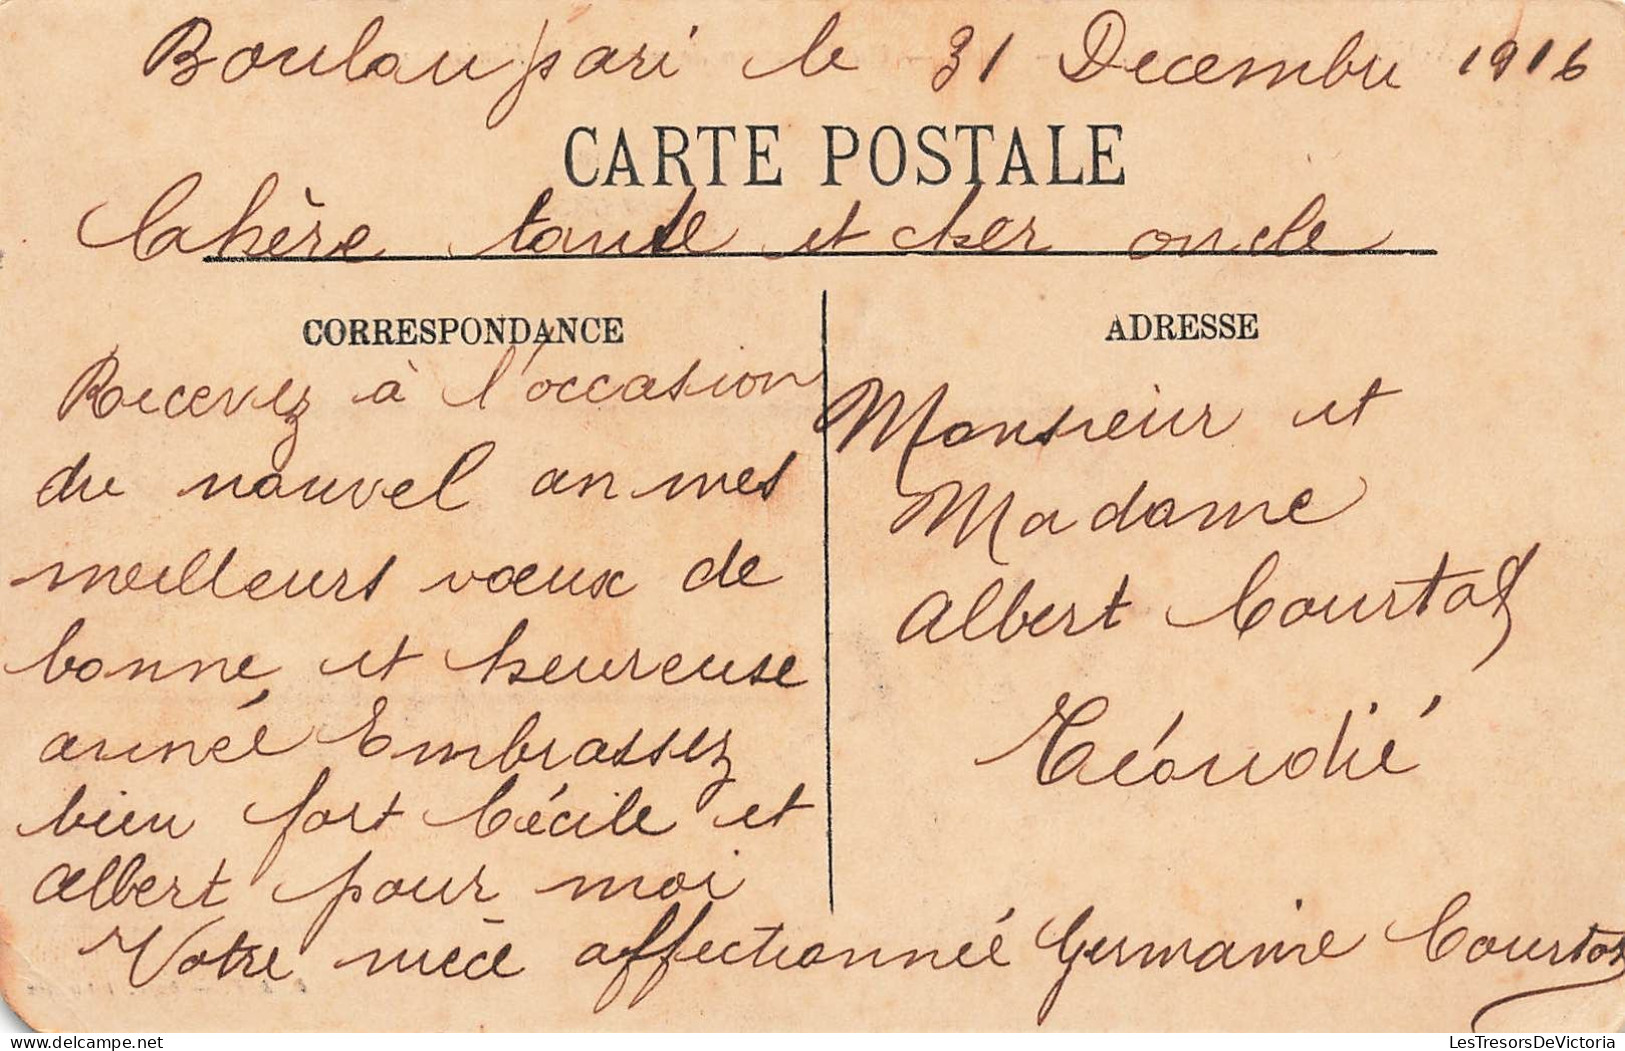 Bouloupari le 31 Decembre 1916
CARTE POSTALE
Cahère tante et cher oncle
CORRESPONDANCE
Recevez à l'occasion
du nouvel an mes
meilleurs vœux de
bonne et heureuse
année Embrassez
bien fort Cécile et
Albert pour moi
Votre nièce affectionnée Germaine Courtot
ADRESSE
Monsieur et
Madame
Albert Courtot
Téoudié
LesTresorsDeVictoria